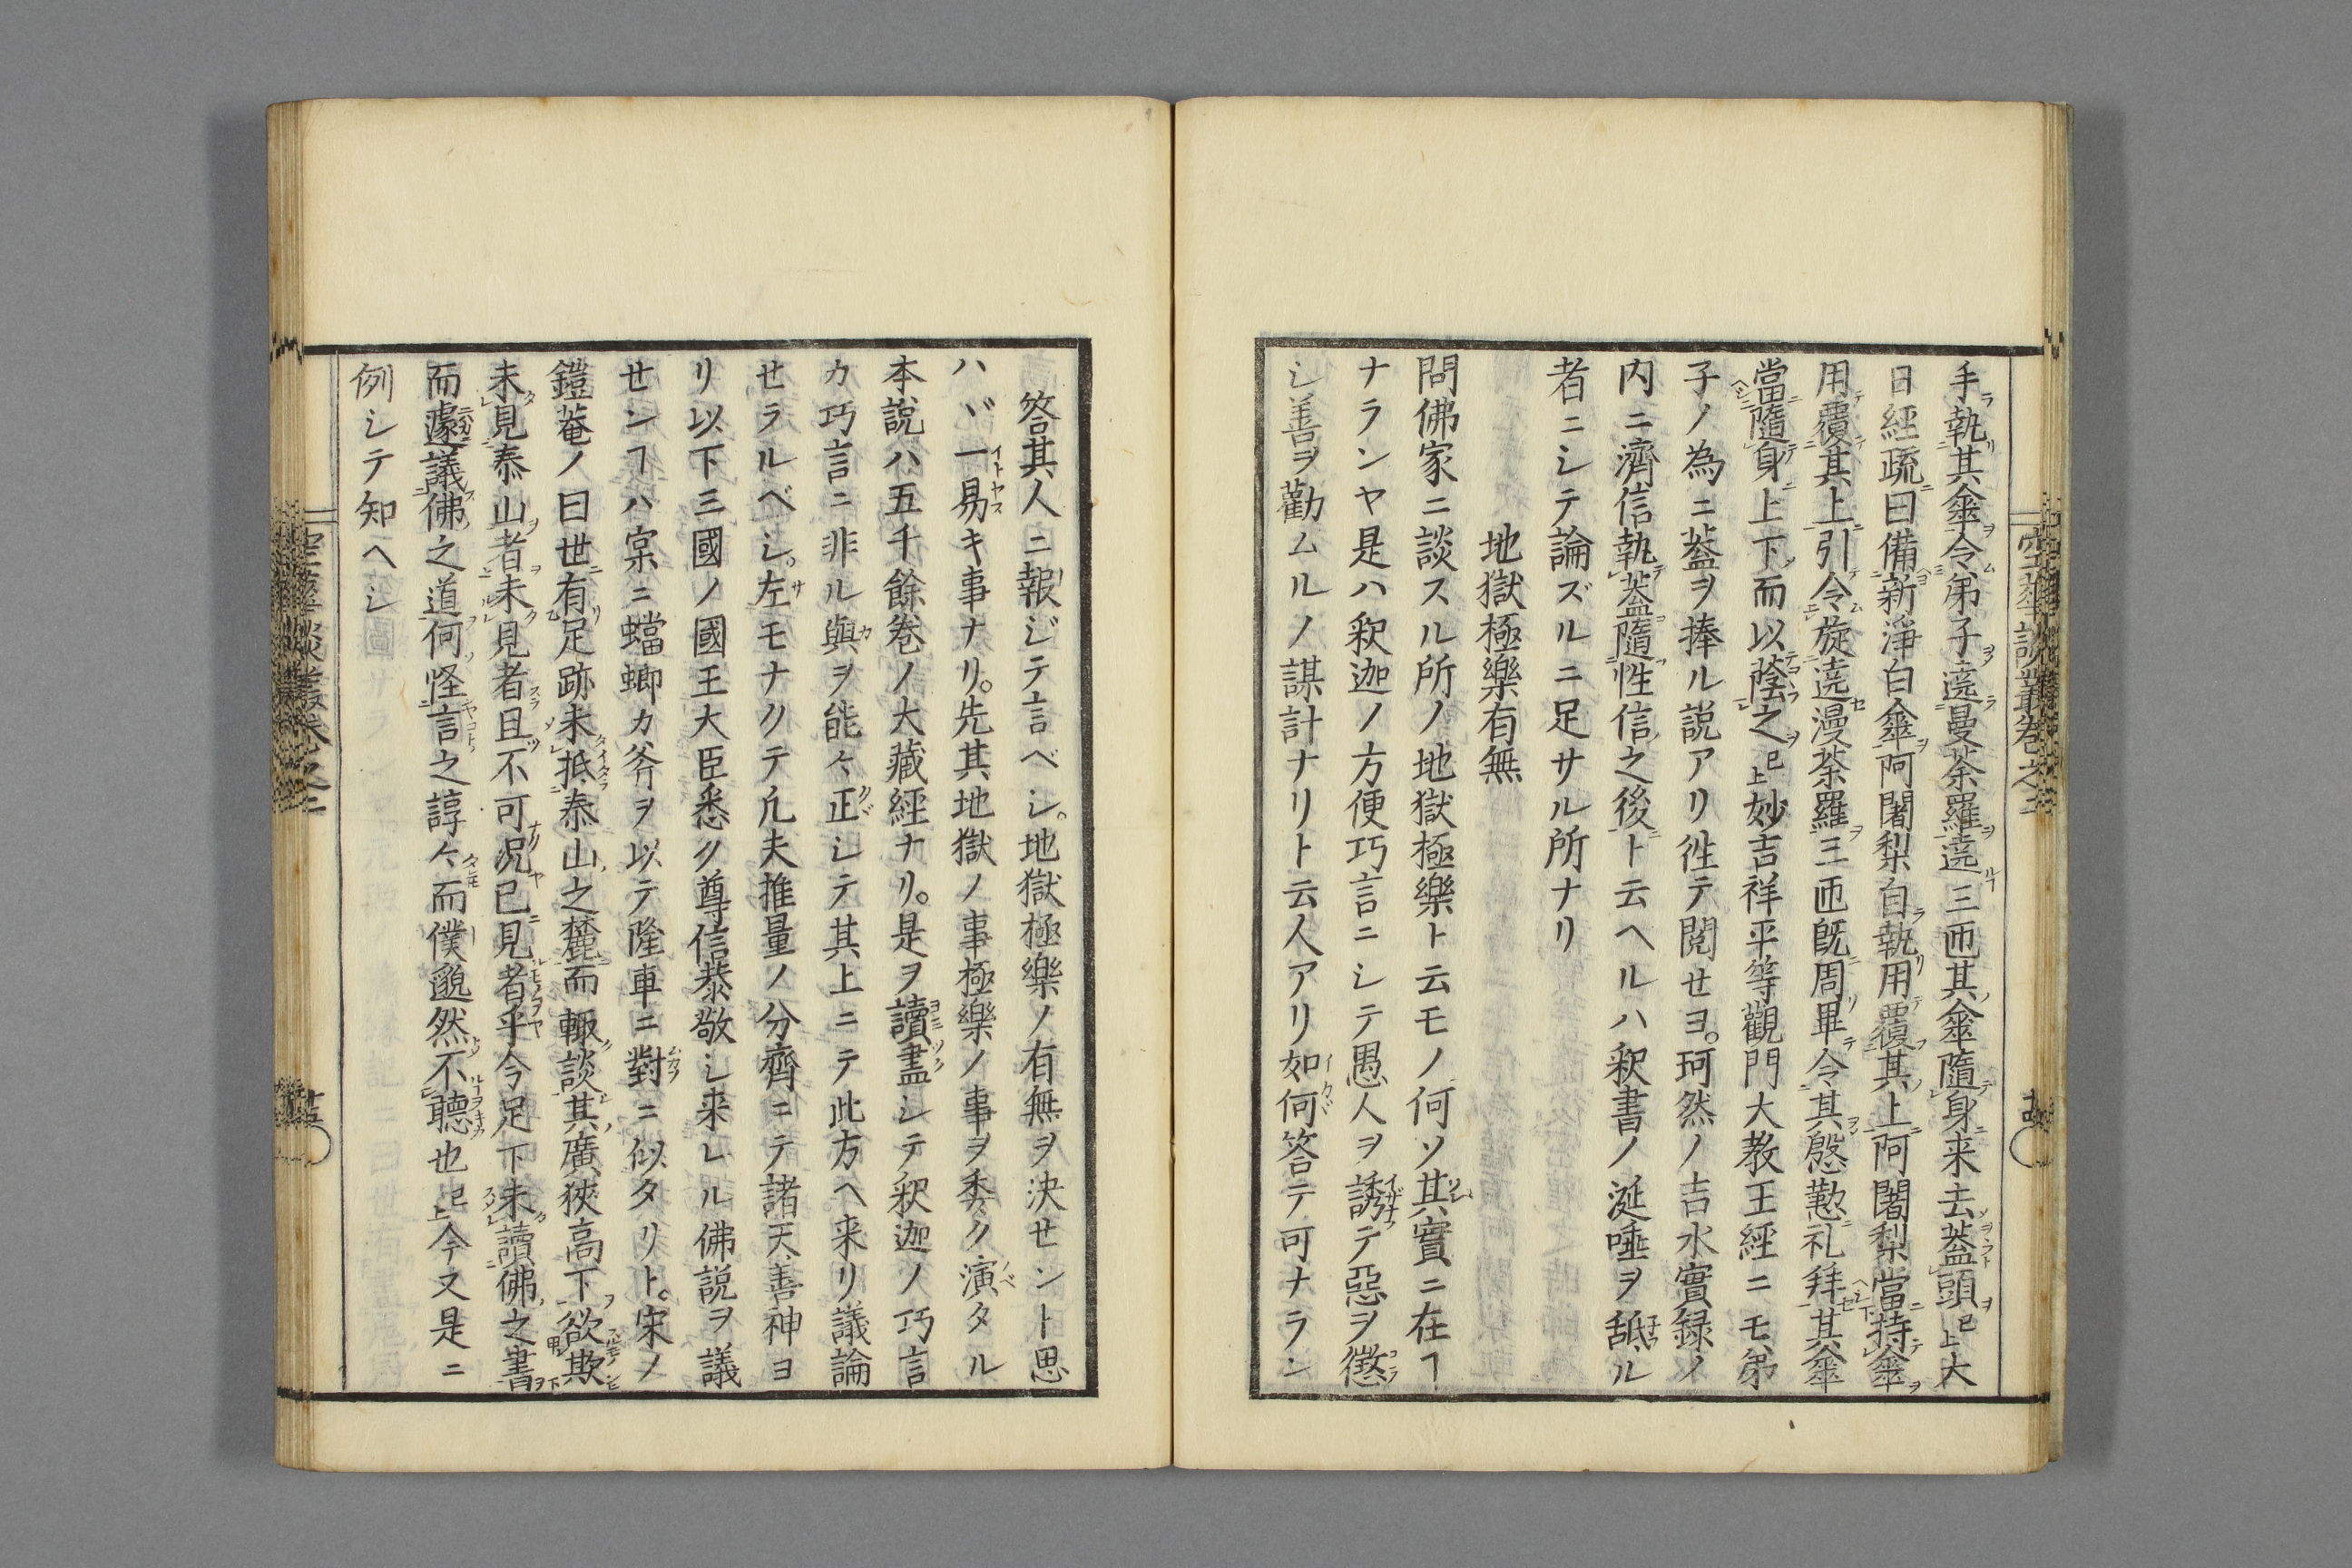 手執其傘令弟子遶曼荼羅遶三匝其傘隨身来去葢頭已上大
日經疏曰備新淨白傘阿闍梨自執用覆其上阿闍梨當持傘
用覆其上引令旋遶漫荼羅三匝既周畢令其慇懃礼拜其傘
當隨身上下而以蔭之已上妙吉祥平等觀門大教王經ニモ弟
子ノ為ニ葢ヲ捧ル説アリ徃テ閲セヨ。珂然ノ吉水實録ノ
内ニ濟信執葢隨性信之後ト云ヘルハ釈書ノ涎唾ヲ舐ル
者ニシテ論ズルニ足サル所ナリ
地獄極樂有無
問佛家ニ談スル所ノ地獄極樂ト云モノ何ソ其實ニ在ヿ
ナランヤ是ハ釈迦ノ方便巧言ニシテ愚人ヲ誘テ惡ヲ懲
シ善ヲ勸ムルノ謀計ナリト云人アリ如何答テ可ナラン
答其人ニ報ジテ言ベシ。地獄極樂ノ有無ヲ決セント思
ハヾ一易キ事ナリ。先其地獄ノ事極樂ノ事ヲ委ク演タル
本説ハ五千餘巻ノ大藏經ナリ。是ヲ讀盡シテ釈迦ノ巧言
カ巧言ニ非ル與ヲ能々正シテ其上ニテ此方ヘ来リ議論
セラルベシ。左モナクテ凡夫推量ノ分齊ニテ諸天善神ヨ
リ以下三國ノ國王大臣悉ク尊信恭敬シ来レル佛説ヲ議
センヿハ寀ニ蟷螂カ斧ヲ以テ隆車ニ對ニ似タリト。宋ノ
鎧菴ノ曰世有足跡未抵泰山之麓而輙談其廣狹高下欲欺
未見泰山者未見者且不可況已見者乎今足下未讀佛之書
而遽議佛之道何怪言之諄々而僕邈然不聽也已上今又是ニ
例シテ知ヘシ